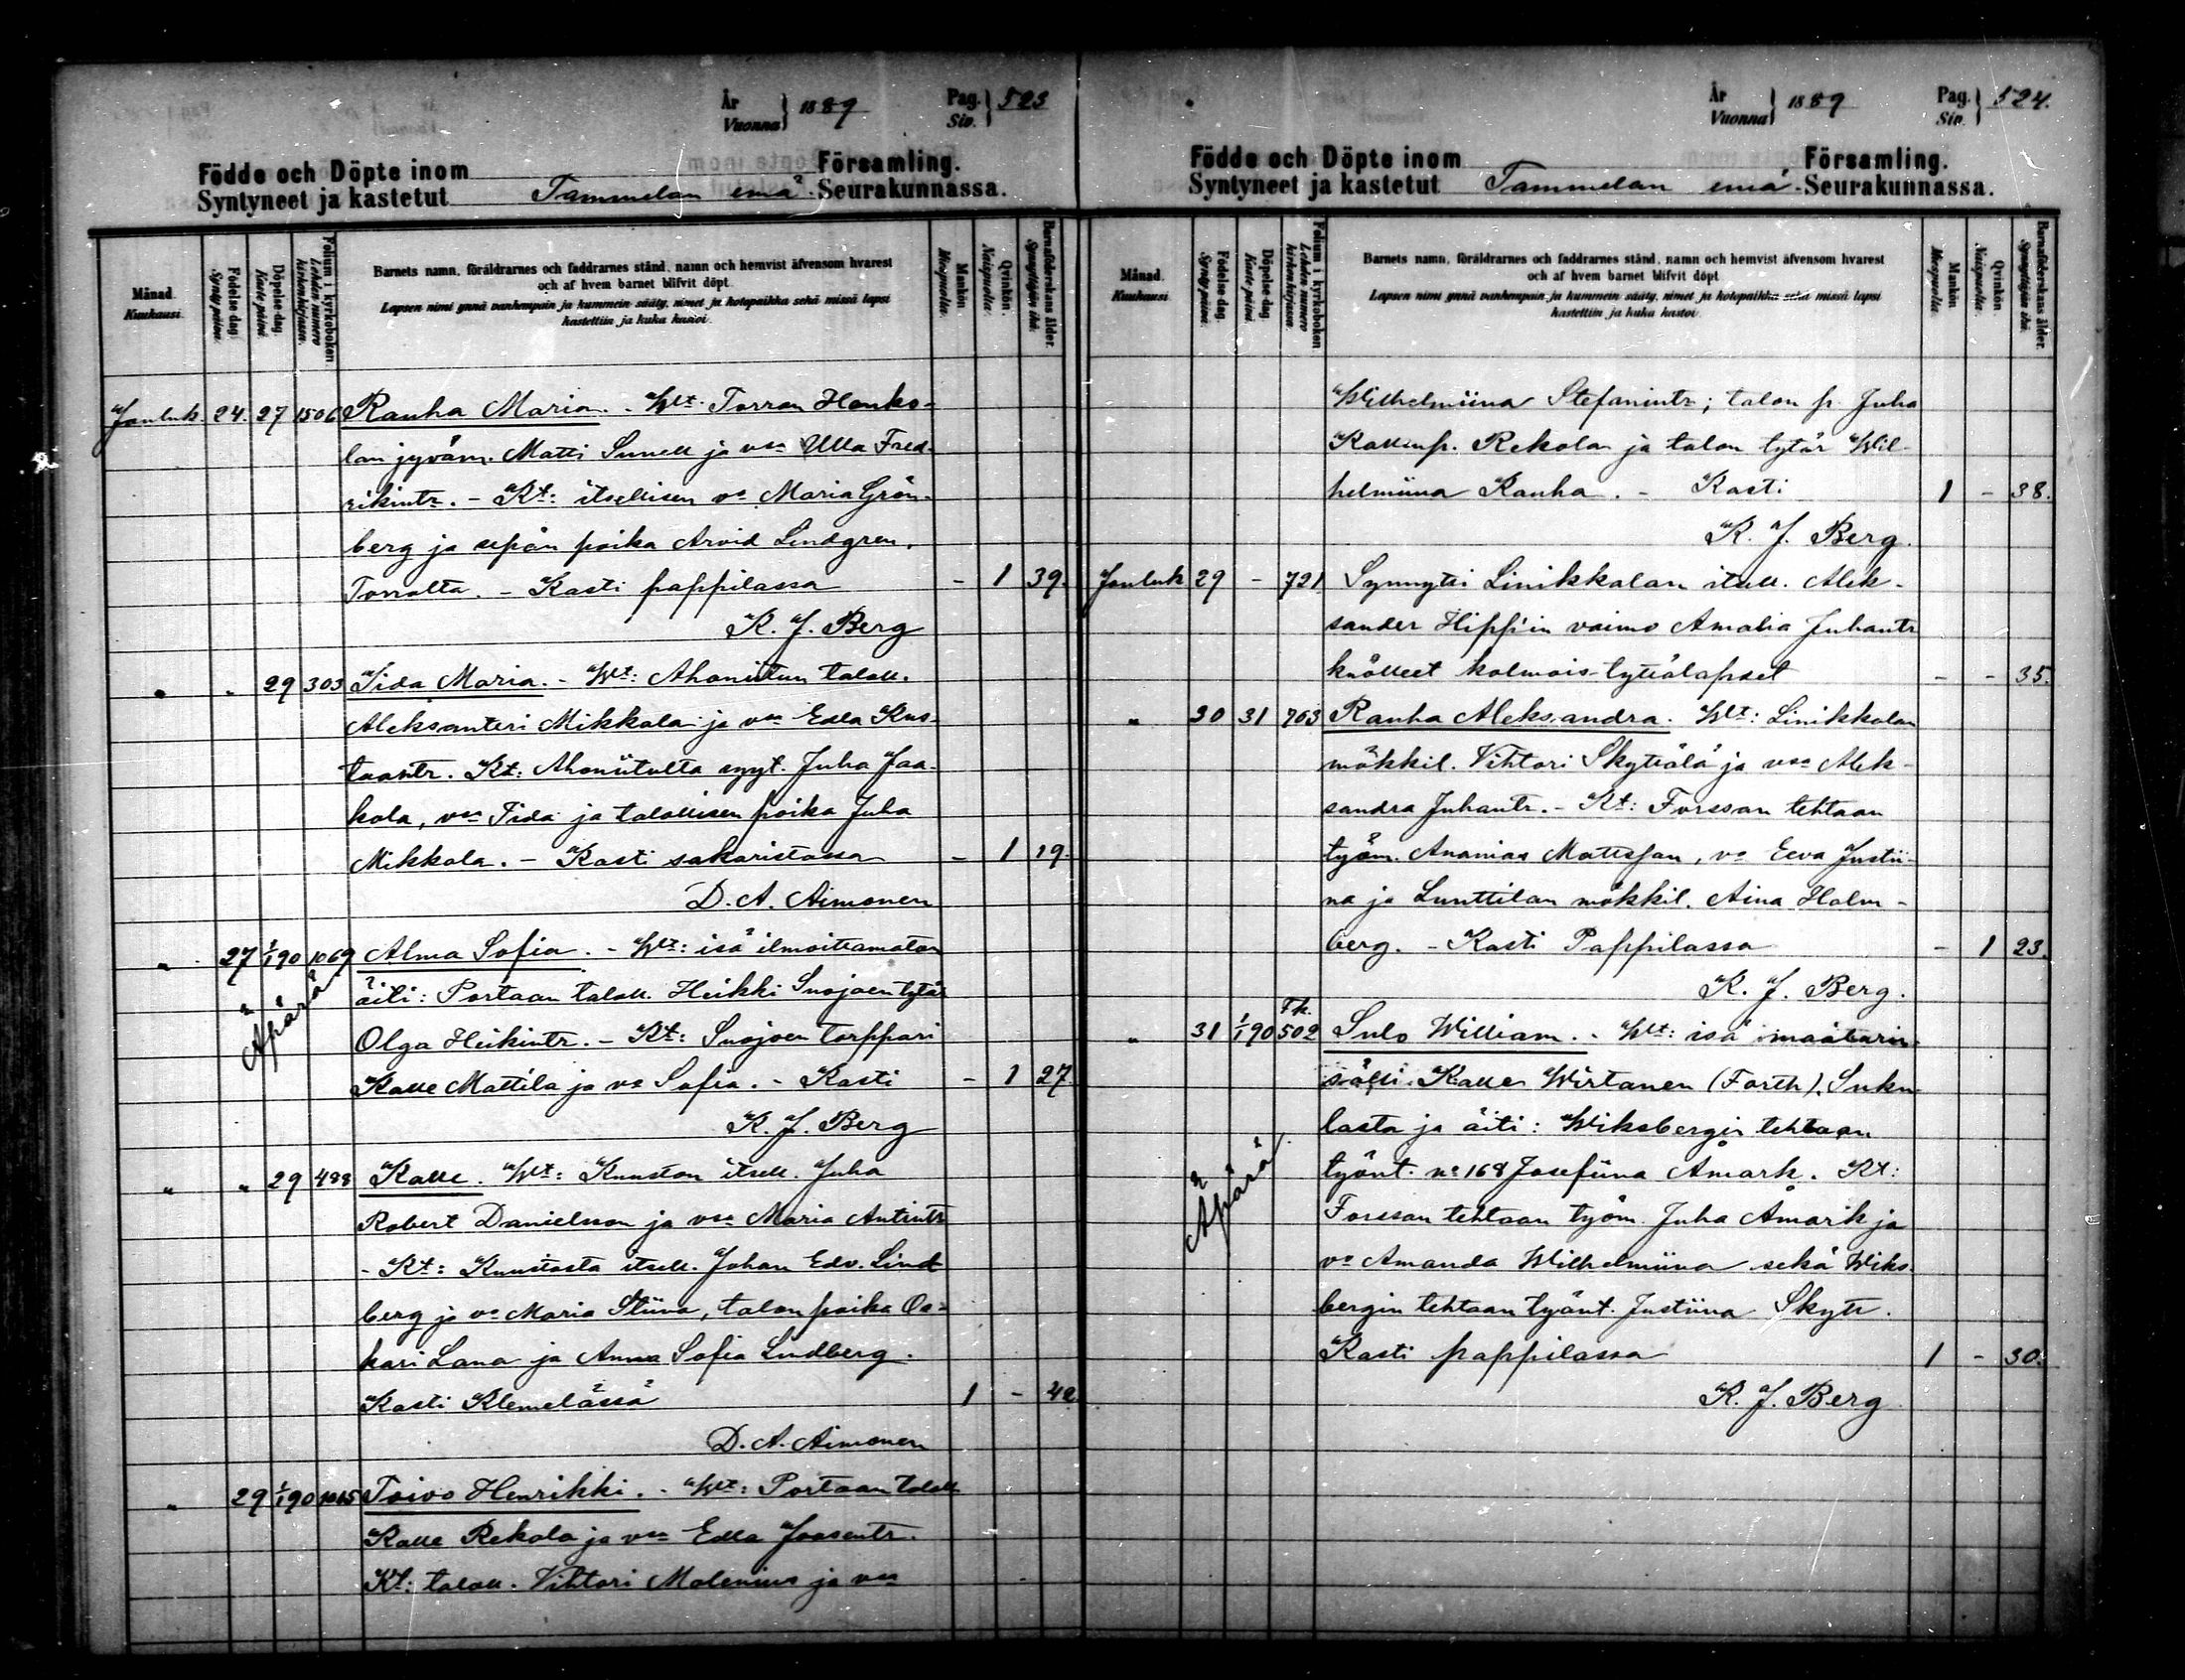 År
Vuonna } 1889 Pag.
Siv. } 523
Födde och Döpte inom Församling.
Syntyneet ja kastetut Tammelan emä Seurakunnassa.
Månad.
Kuukausi.
Födelse dag.
Synty päivä.
Döpelse-dag.
Kaste päivä.
Folium i kyrkoboken
Lehden numero
kirkonkirjassa.
Barnets namn, föräldrarnes och faddrarnes stånd, namn och hemvist äfvensom hvarest
och af hvem barnet blifvit döpt.
Lapsen nimi ynnä vanhempain ja kummein sääty, nimet ja kotopaikka sekä missä lapsi
kastettiin ja kuka kastoi.
Mankön.
Miespuolta.
Qvinkön.
Naispuolta.
Barnaföderskans ålder.
Synnyttäjän ikä.
Jouluk. 24. 27 1506 Rauha Maria. - Wt. Torron Henko-
lan jyväm. Matti Sunell ja vsa Ulla Fred-
rikintr. - Kt: itsellisen vo Maria Grön-
berg ja sepän poika Arvid Lindgren,
Torrolta. - Kasti pappilassa - 1 39.
K. J. Berg
" " 29 303 Iida Maria. - Wt: Ahoniitun taloll.
Aleksanteri Mikkola ja vsa Edla Kus-
taantr. Kt: Ahoniitulta syyt. Juha Jaa-
kola, vsa Iida ja talollisen poika Juha
Mikkola. - Kasti sakaristossa - 1 19.
D. A. Aimonen
" 27 1/1 90 1069 Alma Sofia. - Wt: isä ilmoittamaton
Äpärä
äiti: Portaan taloll. Heikki Suojoen tytär
Olga Heikintr. - Kt: Suojoen torppari
Kalle Mattila ja vo Sofia. - Kasti - 1 27
K. J. Berg
" " 29 488 Kalle. Wt: Kuuston itsell. Juha
Robert Danielsson ja vsa Maria Antintr
- Kt: Kuustosta itsell. Johan Edv. Lind
berg ja vo Maria Stiina, talon poika Os-
kari Lana ja Anna Sofia Lindberg.
Kasti Klemelässä 1 - 42
D. A. Aimonen
" 29 1/1 90 1065 Toivo Henrikki. - Wt: Portaan taloll
Kalle Rekola ja vsa Edla Joosentr.
Kt: taloll. Vihtori Molenius ja vsa
År
Vuonna } 1889 Pag.
Siv. } 524.
Födde och Döpte inom Församling.
Syntyneet ja kastetut Tammelan emä Seurakunnassa.
Månad.
Kuukausi.
Födelse dag.
Synty päivä.
Döpelse-dag.
Kaste päivä.
Folium i kyrkoboken
Lehden numero
kirkonkirjassa.
Barnets namn, föräldrarnes och faddrarnes stånd, namn och hemvist äfvensom hvarest
och af hvem barnet blifvit döpt.
Lapsen nimi ynnä vanhempain ja kummein sääty, nimet ja kotopaikka sekä missä lapsi
kastettiin ja kuka kastoi.
Mankön
Miespuolta.
Qvinkön
Naispuolta.
Barnaföderskans ålder.
Synnyttäjän ikä.
Wilhelmiina Stefanintr; talon p. Juha
Kallenp. Rekola ja talon tytär Wil-
helmiina Rauha. - Kasti 1 - 38.
K. J. Berg.
Jouluk 29 - 721 Synnytti Linikkalan itsell. Alek-
sander Hipp'in vaimo Amalia Juhantr
kuolleet kolmois-tyttölapset - - 35.
" 30 31 703 Rauha Aleksandra. Wt: Linikkalan
mökkil. Vihtori Skyttälä ja vsa Alek-
sandra Juhantr. - Kt: Forssan tehtaan
työm. Ananias Mattsson, vo Eeva Justii-
na ja Lunttilan mökkil. Aina Holm-
berg. - Kasti Pappilassa - 1 23.
K. J. Berg.
" 31 1/1 90 T.k. 502 Sulo William. - Wt: isä maalarin
sälli Kalle Wirtanen (Forth), Suku-
lasta ja äiti: Wiksbergin tehtaan
Äpärä
työnt. no 168 Josefiina Åmark. Kt:
Forssan tehtaan työm. Juha Åmark ja
vo Amanda Wilhelmiina sekä Wiks-
bergin tehtaan työnt. Justiina Skytt.
Kasti pappilassa 1 - 30.
K. J. Berg